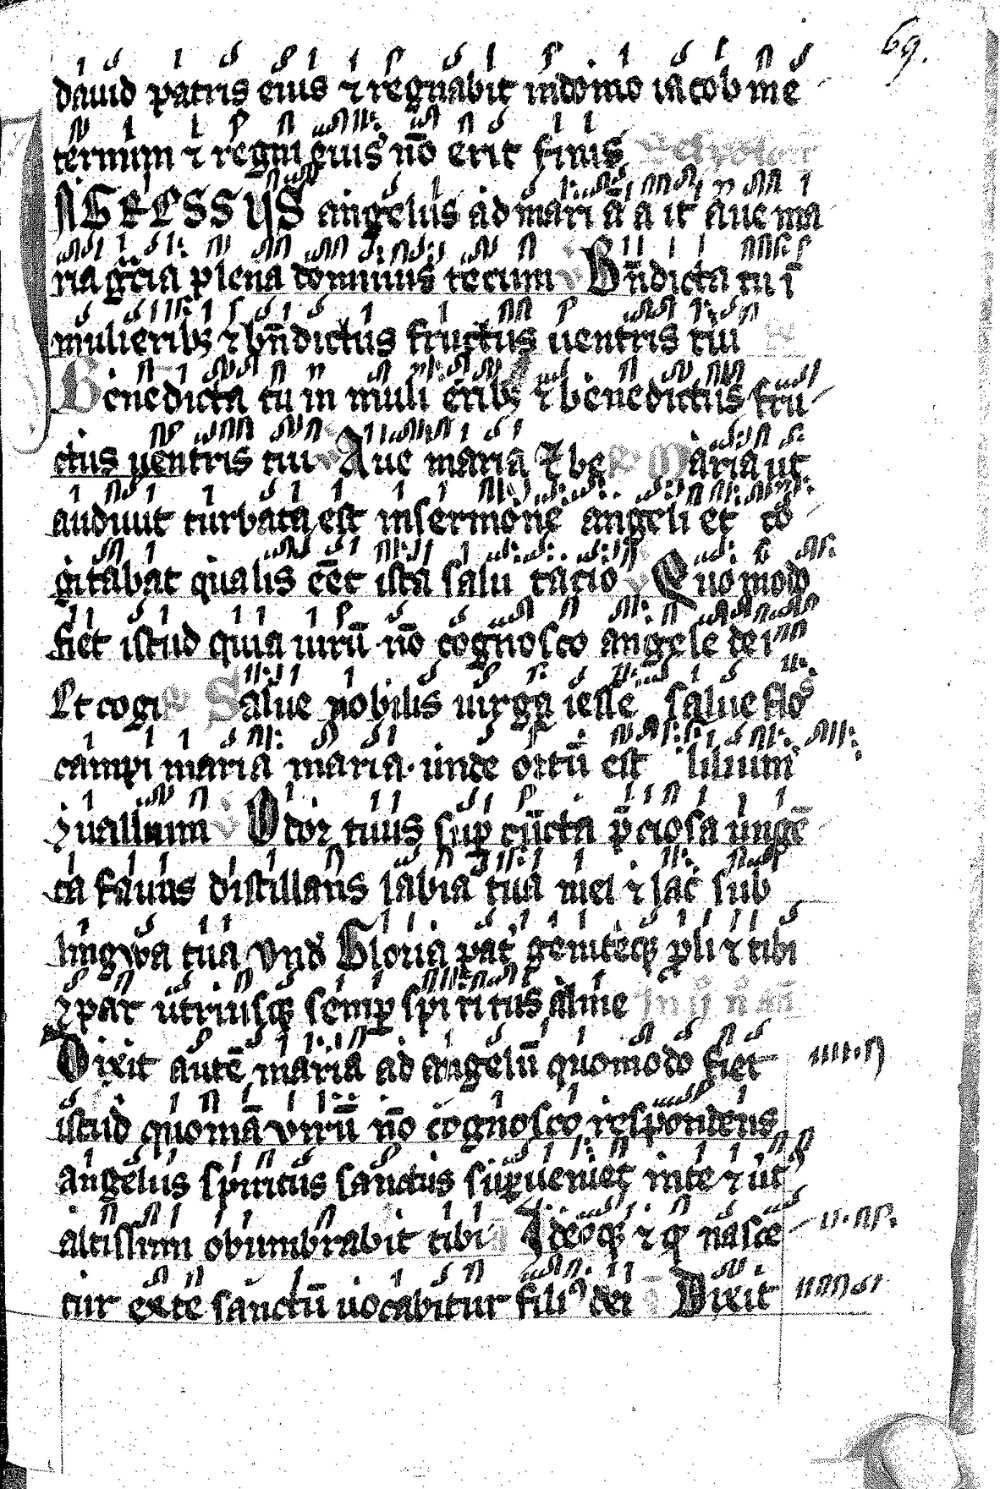 69.
dauid patris eius ⁊ regnabit in domo iacob in e
ternum ⁊ regni eius nō erit finis
INGRESSUS angelus ad mariā a it aue ma
ria grcīa plena dominus tecum Bn̄dicta tu ī
mulieribꝫ ⁊ bn̄dictus fructus uentris tui
Benedicta tu in muli eribꝫ ⁊ benedictus fru
ctus uentris tui Aue maria ⁊ be Maria ut
audiuit turbata est in sermone angeli et co
gitabat qualis eēt ista salu tacio Quomodo
fiet istud quia uirū nō cognosco angele dei
Et cogi Salue nobilis uirga iesse salue flos
campi maria maria unde ortū est lilium
ꝯuallium Odor tuus suꝑ cūcta p̄ciosa ungē
ta fauus distillans labia tua mel ⁊ lac sub
lingwa tua Vnd Gloria pat genitoqꝫ ꝓli ⁊ tibi
ꝯpar utriusqꝫ semꝑ spiritus alme
Dixit autē maria ad angelū quomodo fiet
istud quoniā virū nō cognosco respondens
angelus spiritus sanctus suꝑueniet in te ⁊ uirt
altissimi obumbrabit tibi Ideoqꝫ ⁊ qͦ nasce
tur ex te sanctū uocabitur filiꝰ dei Dixit